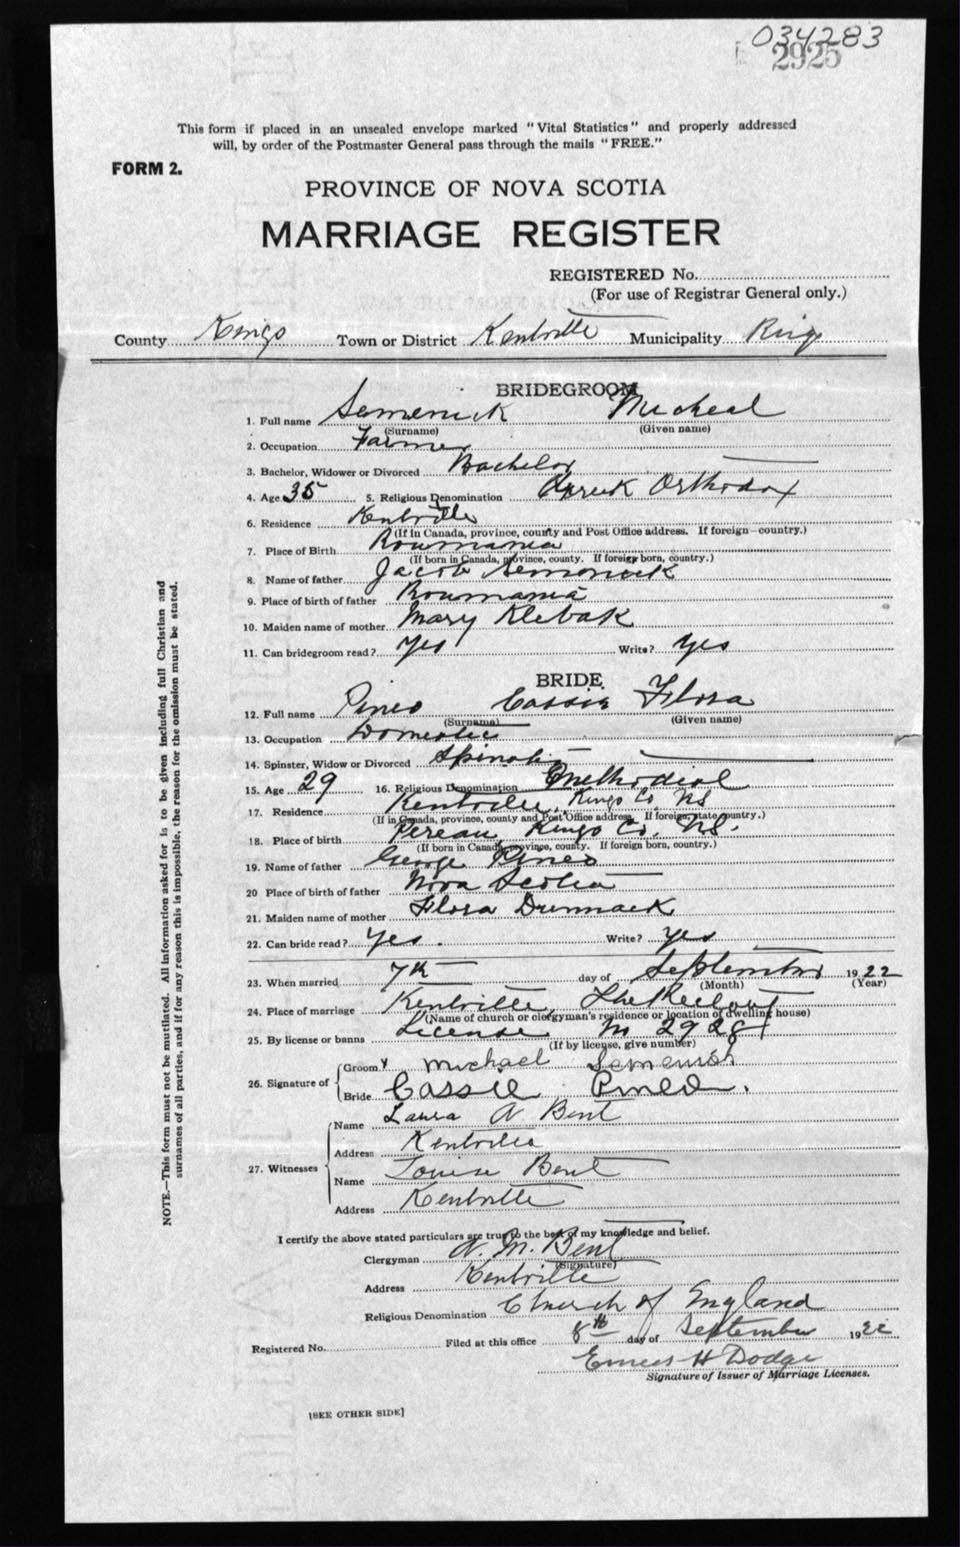 034283
2925
This form if placed in an unsealed envelope marked "Vital Statistics" and properly addressed
will, by order of the Postmaster General pass through the mails "FREE."
FORM 2.
PROVINCE OF NOVA SCOTIA
MARRIAGE REGISTER
REGISTERED No.
(For use of Registrar General only.)
County Kings Town or District Kentville Municipality Kings
BRIDEGROOM
1. Full name Semenuk Micheal
(Surname) (Given name)
2. Occupation Farmer
3. Bachelor, Widower or Divorced Bachelor
4. Age 35 5. Religious Denomination Greek Orthodox
6. Residence Kentville
(If in Canada, province, county and Post Office address. If foreign—country.)
7. Place of Birth Roumania
(If born in Canada, province, county. If foreign born, country.)
8. Name of father Jacob Semonuk
9. Place of birth of father Roumania
10. Maiden name of mother Mary Klebak
11. Can bridegroom read? Yes Write? Yes
BRIDE
12. Full name Pineo Cassie Flora
(Surname) (Given name)
13. Occupation Domestic
14. Spinster, Widow or Divorced
15. Age 29 16. Religious Denomination Methodist
17. Residence Kentville, Kings Co. NS
(If in Canada, province, county and Post Office address. If foreign, state country.)
18. Place of birth Pereau, Kings Co. NS.
(If born in Canada, province, county. If foreign born, country.)
19. Name of father George Pineo
20 Place of birth of father Nova Scotia
21. Maiden name of mother Flora
22. Can bride read? Yes. Write? Yes
23. When married 7th day of September 1922
(Month) (Year)
24. Place of marriage Kentville, The
(Name of church or clergyman's residence or location of dwelling house)
25. By license or banns License No 2928
(If by license, give number)
26. Signature of Groom Michael
Bride Cassie Pineo.
27. Witnesses Name Laura A Bent
Address Kentville
Name Louise Bent
Address Kentville
I certify the above stated particulars are true to the best of my knowledge and belief.
Clergyman A. M. Bent
(Signature)
Address Kentville
Religious Denomination Church of England
Registered No. Filed at this office 8th day of September 1922
H Dodge
Signature of Issuer of Marriage Licenses.
[SEE OTHER SIDE]
NOTE.—This form must not be mutilated. All information asked for is to be given including full Christian and
surnames of all parties, and if for any reason this is impossible, the reason for the omission must be stated.